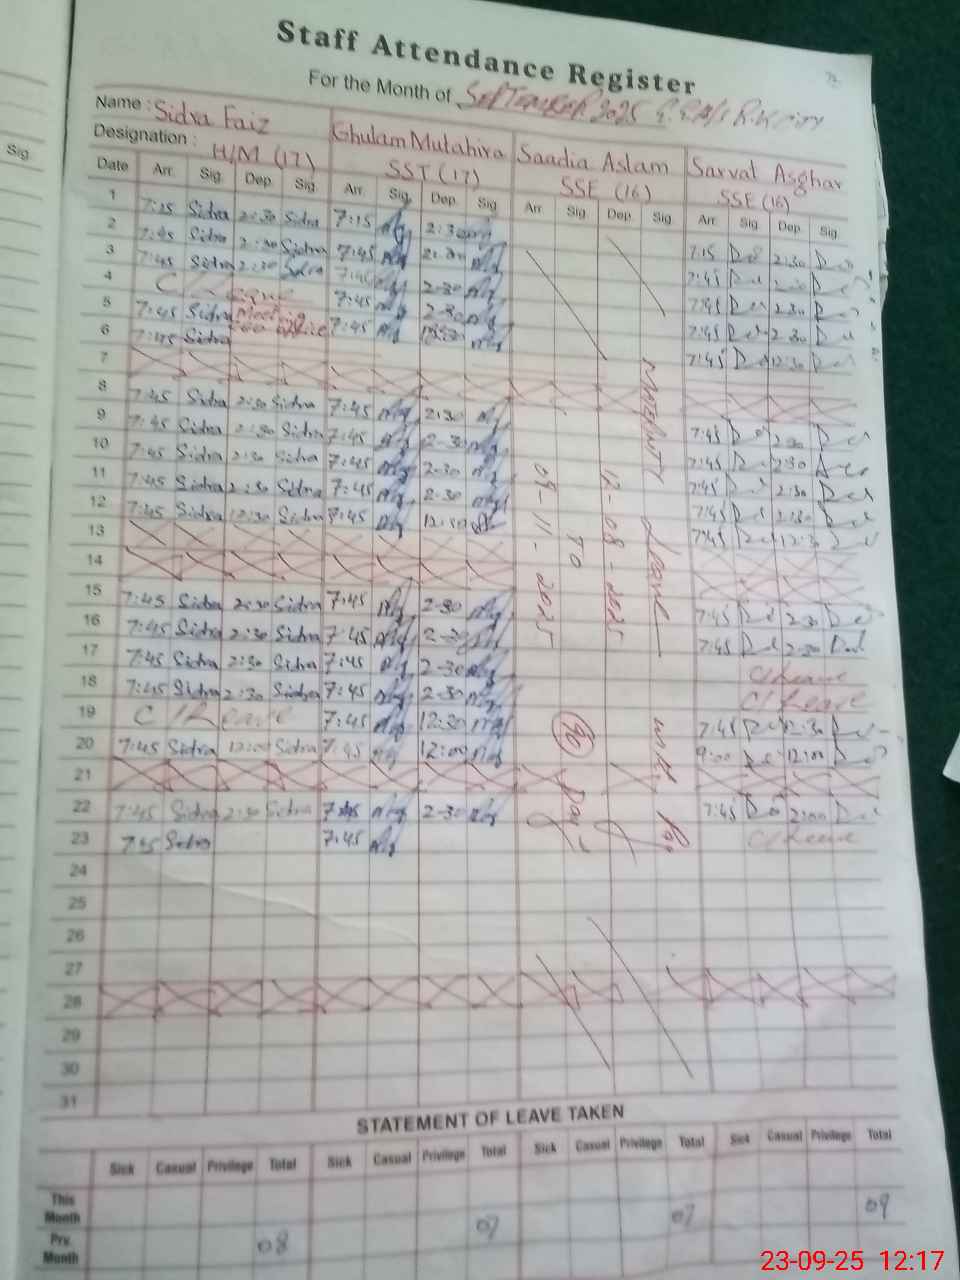 Staff Attendance Register
For the Month of September 2025
Name : Sidra Faiz Ghulam Mutahira Saadia Aslam Sarvat Asghar
Designation : H/M (17) SST (17) SSE (16) SSE (16)
Sig.
Date Arr. Sig. Dep. Sig. Arr. Sig. Dep. Sig. Arr. Sig. Dep. Sig. Arr. Sig. Dep. Sig.
1 7:15 Sidra 2:30 Sidra 7:15 2:30 7:15 2:30
2 7:45 Sidra 2:30 Sidra 7:45 2:30 7:45 2:30
3 7:45 Sidra 2:30 Sidra 7:45 2:30 7:45 2:30
4 C/Leave 7:45 2:30 7:45 2:30
5 7:45 Sidra Meeting 7:45 7:45 12:30
6 7:45 Sidra
7
8 7:45 Sidra 2:30 Sidra 7:45 2:30 7:45 2:30
9 7:45 Sidra 2:30 Sidra 7:45 2-30 7:45 2:30
10 7:45 Sidra 2:30 Sidra 7:45 2-30 7:45 2:30
11 7:45 Sidra 2:30 Sidra 7:45 2-30 7:45 2:30
12 7:45 Sidra 12:30 Sidra 7:45 12:30 7:45 12:3
13
14
15 7:45 Sidra 2:30 Sidra 7:45 2-30 7:45 2:30
16 7:45 Sidra 2:30 Sidra 7:45 2-30 7:45 2:30
17 7:45 Sidra 2:30 Sidra 7:45 2-30 C/Leave
18 7:45 Sidra 2:30 Sidra 7:45 2-30 C/Leave
19 C/Leave 7:45 12:30 7:45 12:30
20 7:45 Sidra 12:00 Sidra 7:45 12:00 9:00 12:00
21
22 7:45 Sidra 2:30 Sidra 7:45 2-30 7:45 2:00
23 7:45 Sidra 7:45 C/Leave
24
25
26
27
28
29
30
31
MATERNITY Leave with Pay
12-08-2025
TO
09-11-2025
90 Day
STATEMENT OF LEAVE TAKEN
Sick Casual Privilege Total Sick Casual Privilege Total Sick Casual Privilege Total Sick Casual Privilege Total
This Month
Prv. Month 08 07 07 09
23-09-25 12:17